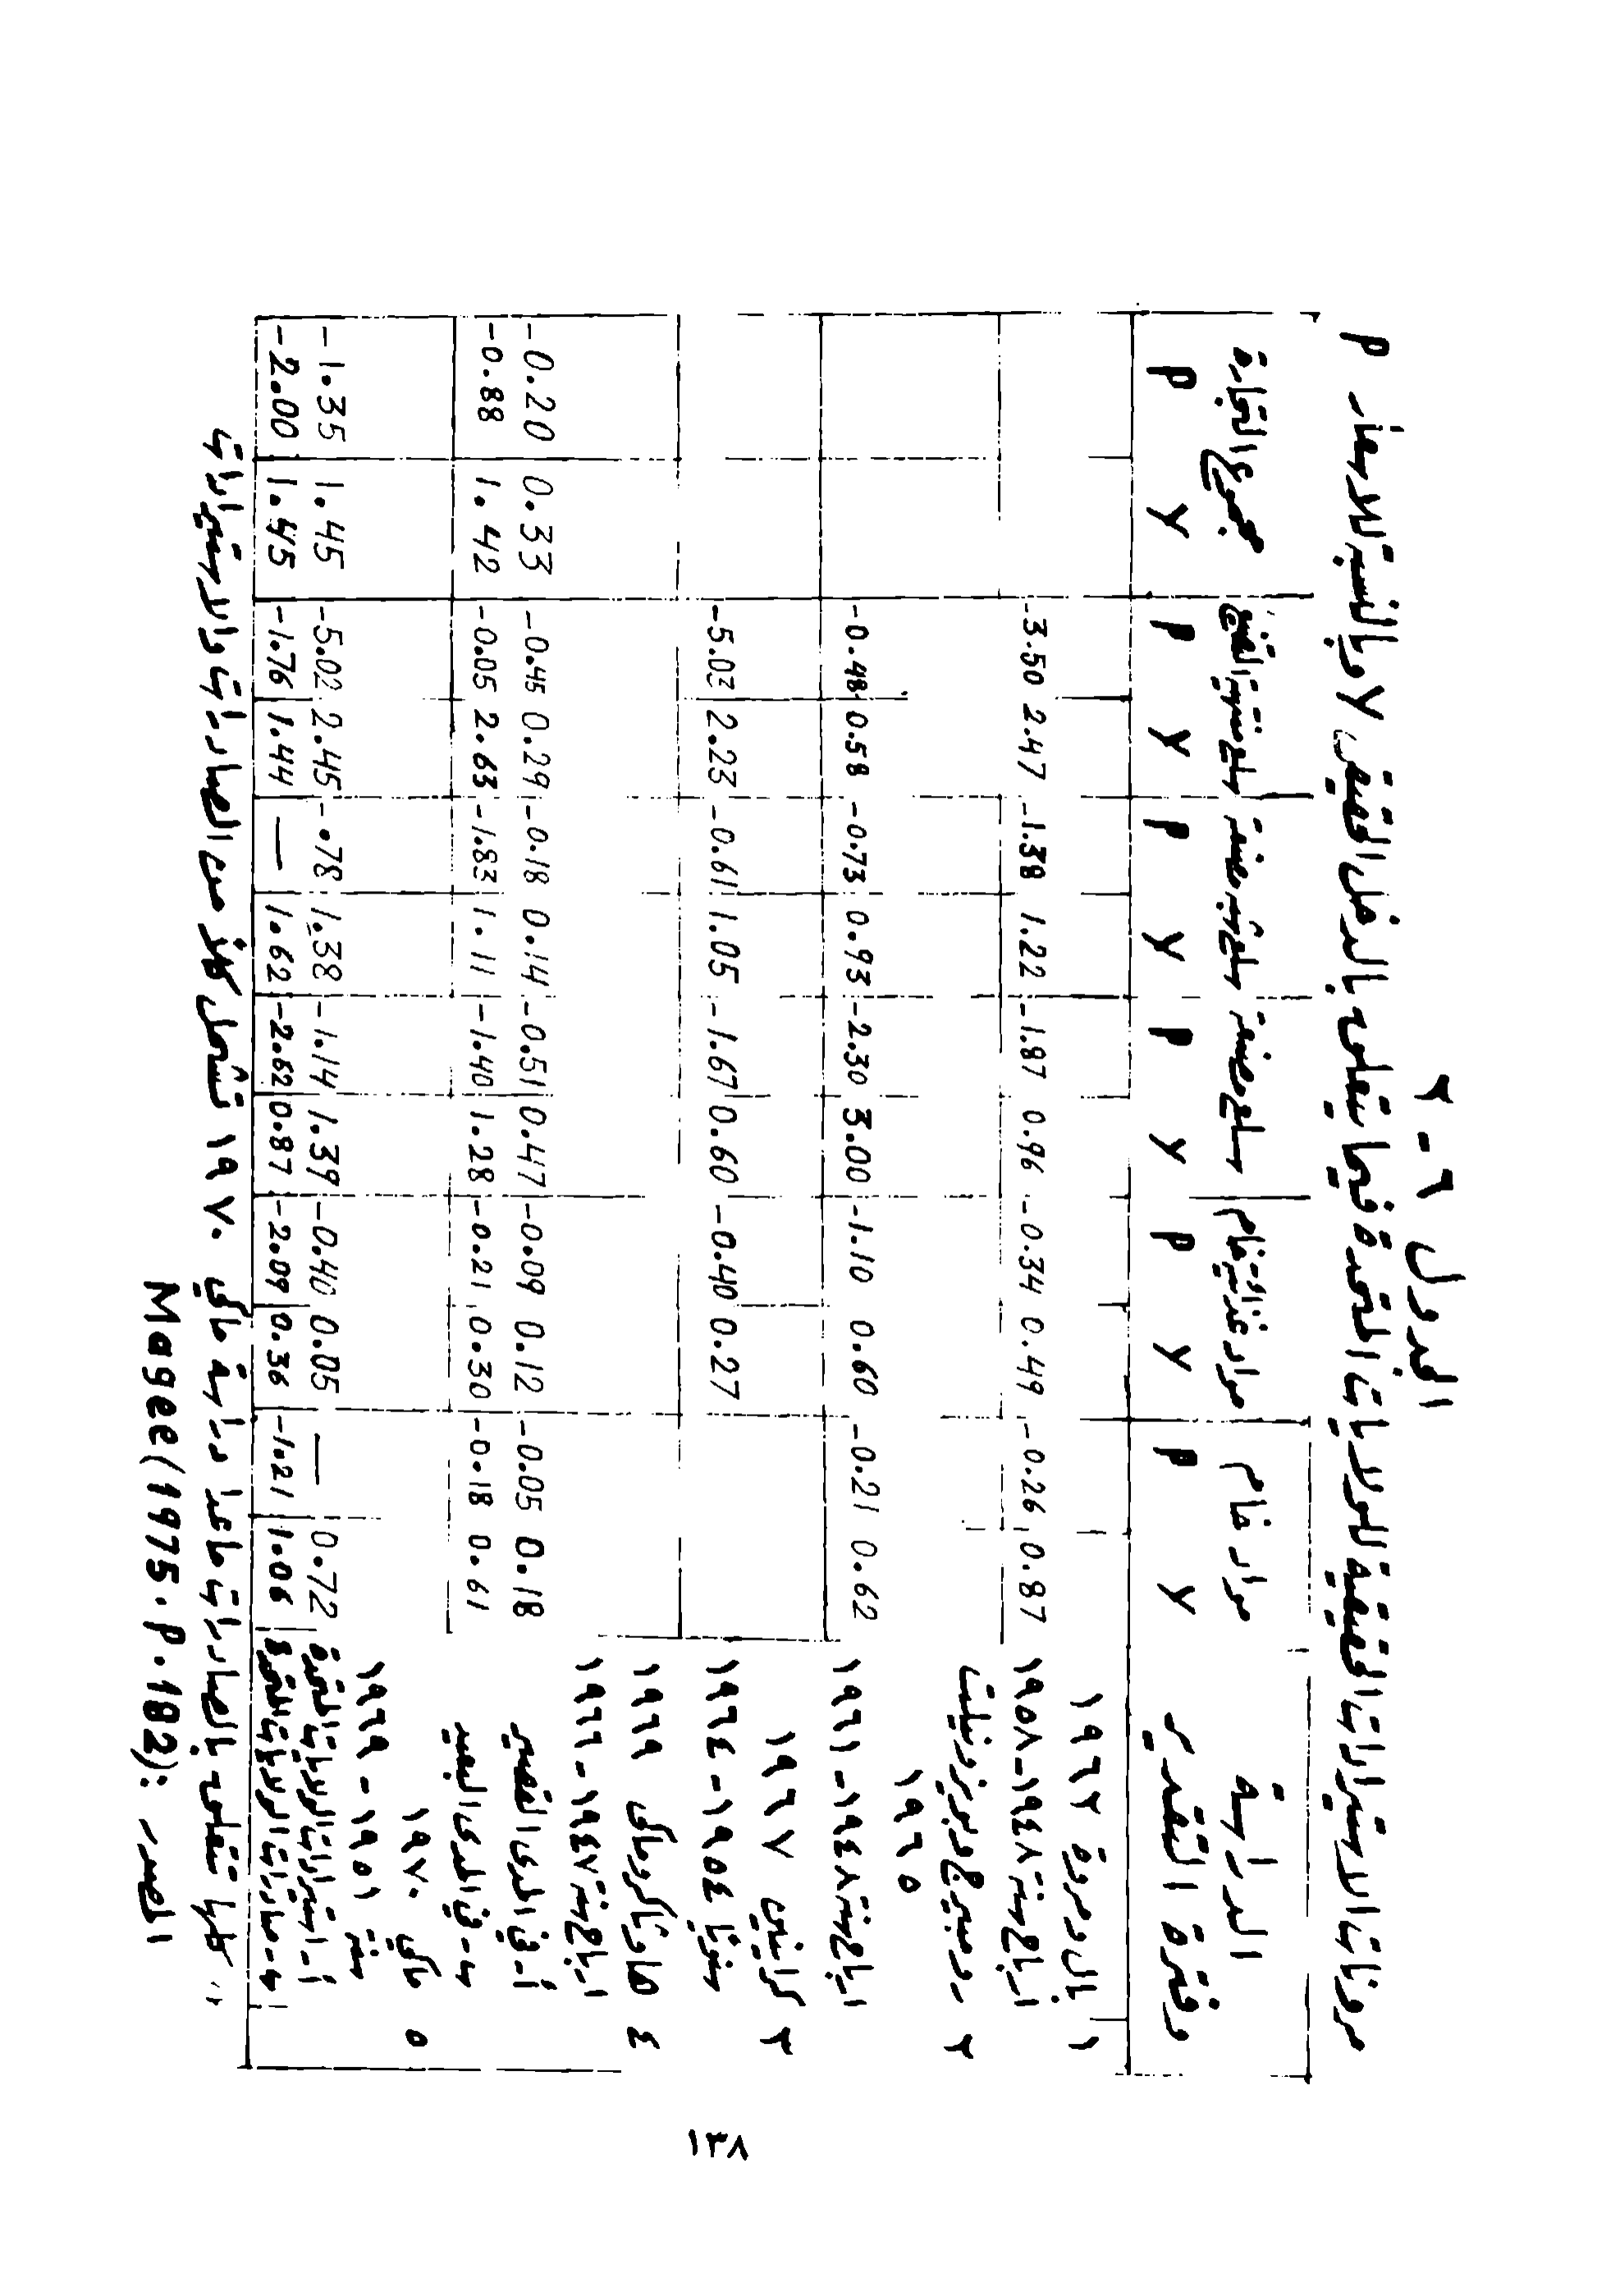 الجدول ٦ - ٢
مرونات الاستيرادات الحقيقية للولايات المتحدة فيما يتعلق بالدخل الحقيقي y وبالنسبة للاسعار P
الدراسة وفترة التقدير | مواد خام | مواد غذائية خام | سلع مصنعة | سلع شبه مصنعة | سلع منتهية التصنيع | مجموع التجارة
y P y P y P y P y P y P
١ بال ومروة ١٩٦٢
ارباع سنة ١٩٤٨-١٩٥٨ 0.87 -0.26 0.49 -0.34 0.96 -1.87 1.22 -1.38 2.47 -3.50
٢
١٩٦٥
ارباع سنة ١٩٤٨-١٩٦١ 0.62 -0.21 0.60 -1.10 3.00 -2.30 0.93 -0.73 0.58 -0.48
٣ كراينين ١٩٦٧
سنويا ١٩٥٤-١٩٦٤ 0.27 -0.40 0.60 -1.67 1.05 -0.61 2.23 -5.03
٤ هاوثاكر وماكي ١٩٦٩
ارباع سنة ١٩٤٧-١٩٦٦
أ- في المدى القصير 0.18 -0.05 0.12 -0.09 0.47 -0.51 0.14 -0.18 0.29 -0.45 0.33 -0.20
ب- في المدى البعيد 0.61 -0.18 0.30 -0.21 1.28 -1.40 1.11 -1.83 2.63 -0.05 1.42 -0.88
٥ ماكي ١٩٧٠
سنة ١٩٥١ - ١٩٦٩
أ- استيرادات الولايات المتحدة 0.72 — 0.05 -0.40 1.39 -1.14 1.38 -.78 2.45 -5.02 1.45 -1.35
ب- صادرات الولايات المتحدة 1.06 -1.21 0.36 -2.09 0.87 -2.62 1.62 — 1.44 -1.76 1.45 -2.00
،، كلها تتعلق بالصادرات ماعدا دراسة ماكي ١٩٧٠ تشمل كلاً من الصادرات والاستيرادات
المصدر :Magee(1975.P.182)
١٣٨